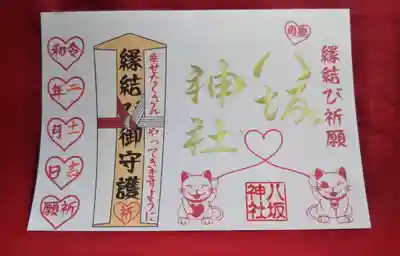 縁結び祈願
八坂
神社
八坂
神社
幸せたくさん
やってきますように
縁結び御守護
祈
令和
二年
月
日
祈願